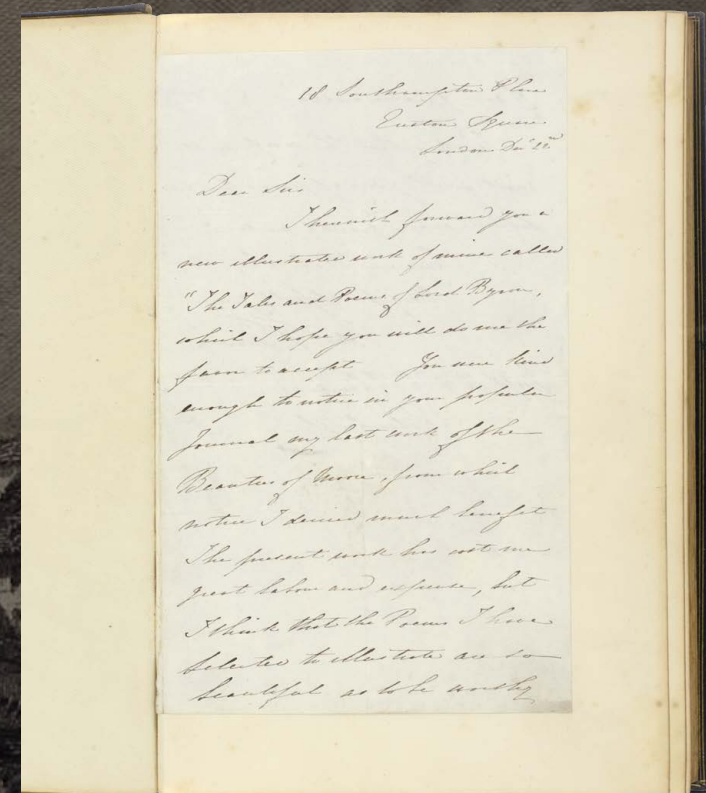 18 Southampton Place
Euston Square
London Decr 22nd
Dear Sir
I herewith forward you a
new illustrated work of mine called
"The Tales and Poems of Lord Byron,
which I hope you will do me the
favor to accept You were kind
enough to notice in your popular
Journal my last work of the
Beauties of Moore, from which
notice I derived much benefit
The present work has cost me
great labour and expense, but
I think that the Poems I have
selected to illustrate are so
beautiful as to be worthy